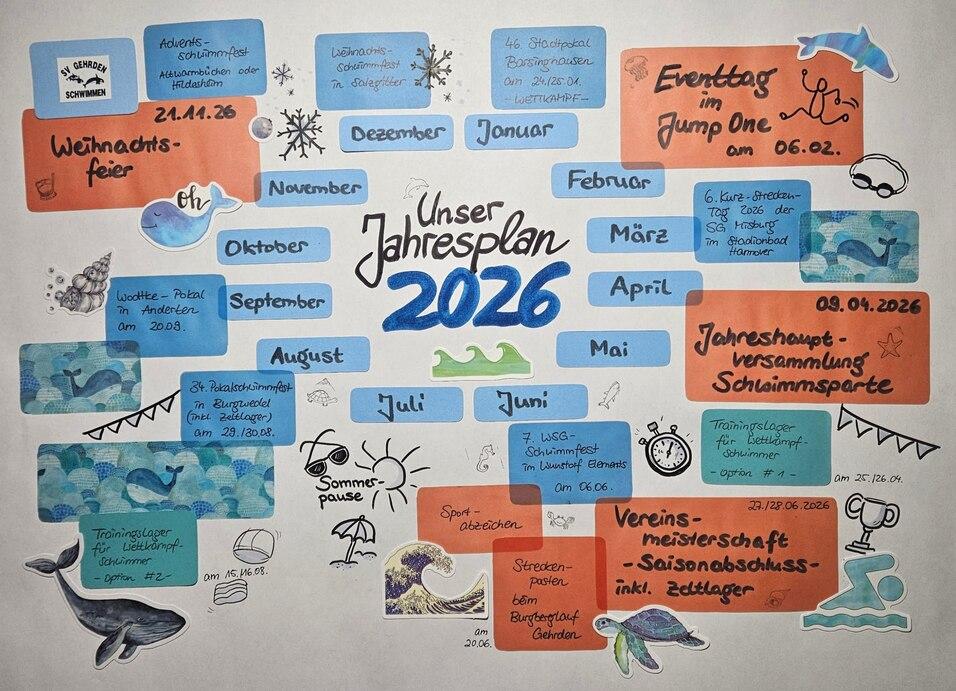 SV GEHRDEN
SCHWIMMEN
Advents-
schwimmfest
Altwarmbüchen oder
Hildesheim
Weihnachts-
schwimmfest
in Salzgitter
46. Stadtpokal
Barsinghausen
am 24./25.01.
- WETTKAMPF -
Eventtag
im
Jump One
am 06.02.
21.11.26
Weihnachts-
feier
Dezember
Januar
November
Februar
oh
Unser
Jahresplan
2026
6. Kurz-Strecken-
Tag 2026 der
SG Misburg
im Stadionbad
Hannover
Oktober
März
September
April
Wodtke-Pokal
in Anderten
am 20.09.
09.04.2026
Jahreshaupt-
versammlung
Schwimmsparte
August
Mai
34. Pokalschwimmfest
in Burgwedel
(inkl. Zeltlager)
am 29./30.08.
Juli
Juni
7. WSG-
Schwimmfest
im Wunstorf Elements
am 06.06.
Trainingslager
für Wettkampf-
schwimmer
- Option #1 -
am 25./26.04.
Sommer-
pause
Sport-
abzeichen
27./28.06.2026
Vereins-
meisterschaft
- Saisonabschluss -
inkl. Zeltlager
Trainingslager
für Wettkampf-
schwimmer
- Option #2 -
am 15./16.08.
Strecken-
posten
beim
Burgberglauf
Gehrden
am
20.06.